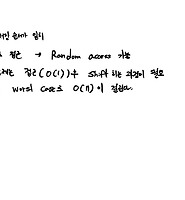 순서가 일치
접근 → Random access 가능
접근(O(1))+ shift 하는 과정이 필요
worst case는 O(n)이 걸린다.